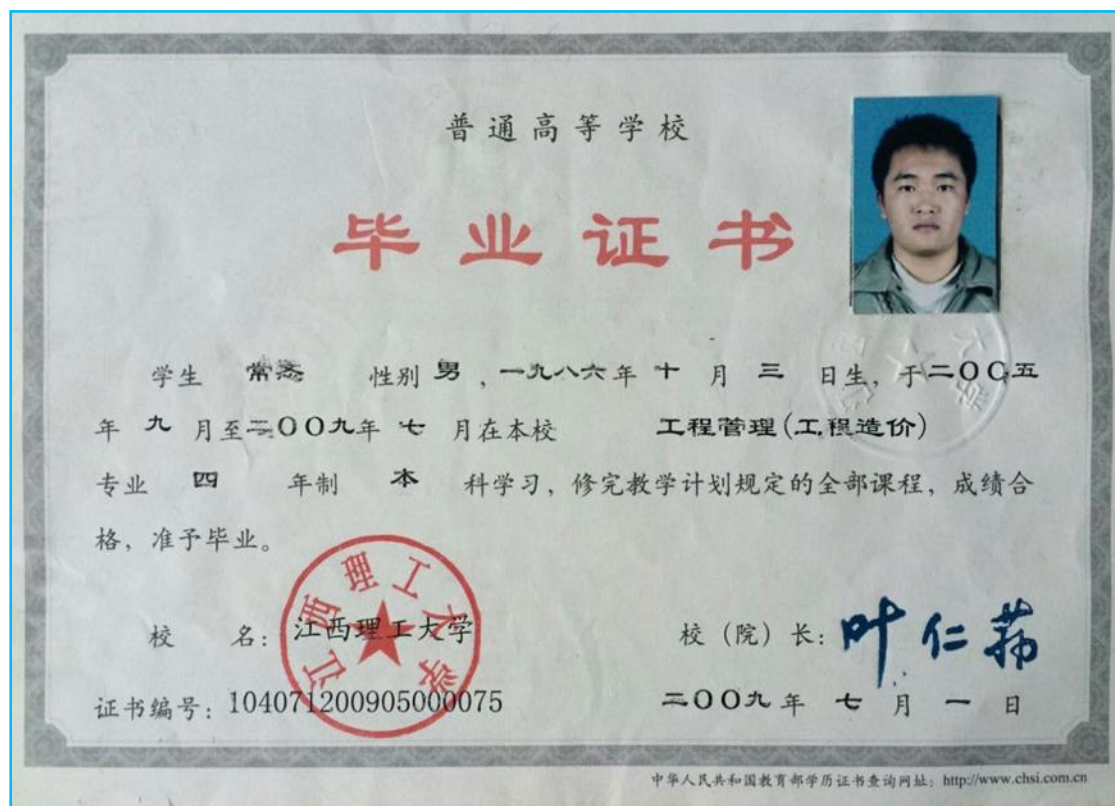 普通高等学校
毕业证书
学生 常 性别 男，一九八六年 十 月 三 日生，于二〇〇五
年 九 月至二〇〇九年 七 月在本校 工程管理(工程造价)
专业 四 年制 本 科学习，修完教学计划规定的全部课程，成绩合
格，准予毕业。
江西理工大学
校 名：江西理工大学
校（院）长：叶仁荪
证书编号：104071200905000075
二〇〇九年 七 月 一 日
中华人民共和国教育部学历证书查询网址：http://www.chsi.com.cn